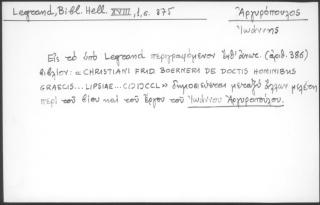 Legrand, Bibl. Hell. XVIII, 1, σ. 375
Ἀργυρόπουλος
Ἰωάννης
Εἰς τὸ ὑπὸ Legrand περιγραφόμενον (ἀριθ. 386)
βιβλίον: «CHRISTIANI FRID BOERNERI DE DOCTIS HOMINIBUS
GRAECIS... LIPSIAE... CIƆIƆCCL» δημοσιεύεται μεταξὺ ἄλλων μελέτη
περὶ τοῦ βίου καὶ τοῦ ἔργου τοῦ Ἰωάννου Ἀργυροπούλου.